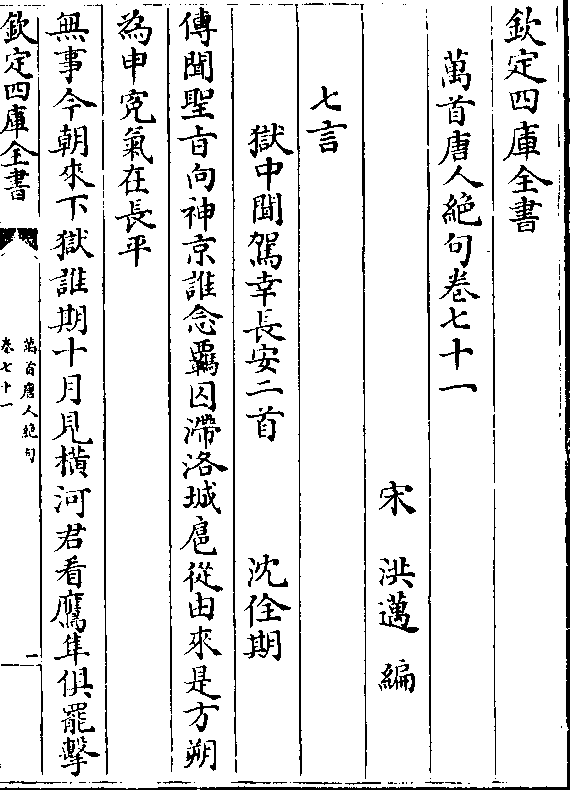 欽定四庫全書
萬首唐人絶句卷七十一
宋 洪邁 編
七言
獄中聞駕幸長安二首 沈佺期
傳聞聖旨向神京誰念覊囚滯洛城扈從由來是方朔
為申寃氣在長平
無事今朝來下獄誰期十月見橫河君看鷹隼俱罷擊
欽定四庫全書
萬首唐人絶句
卷七十一
一